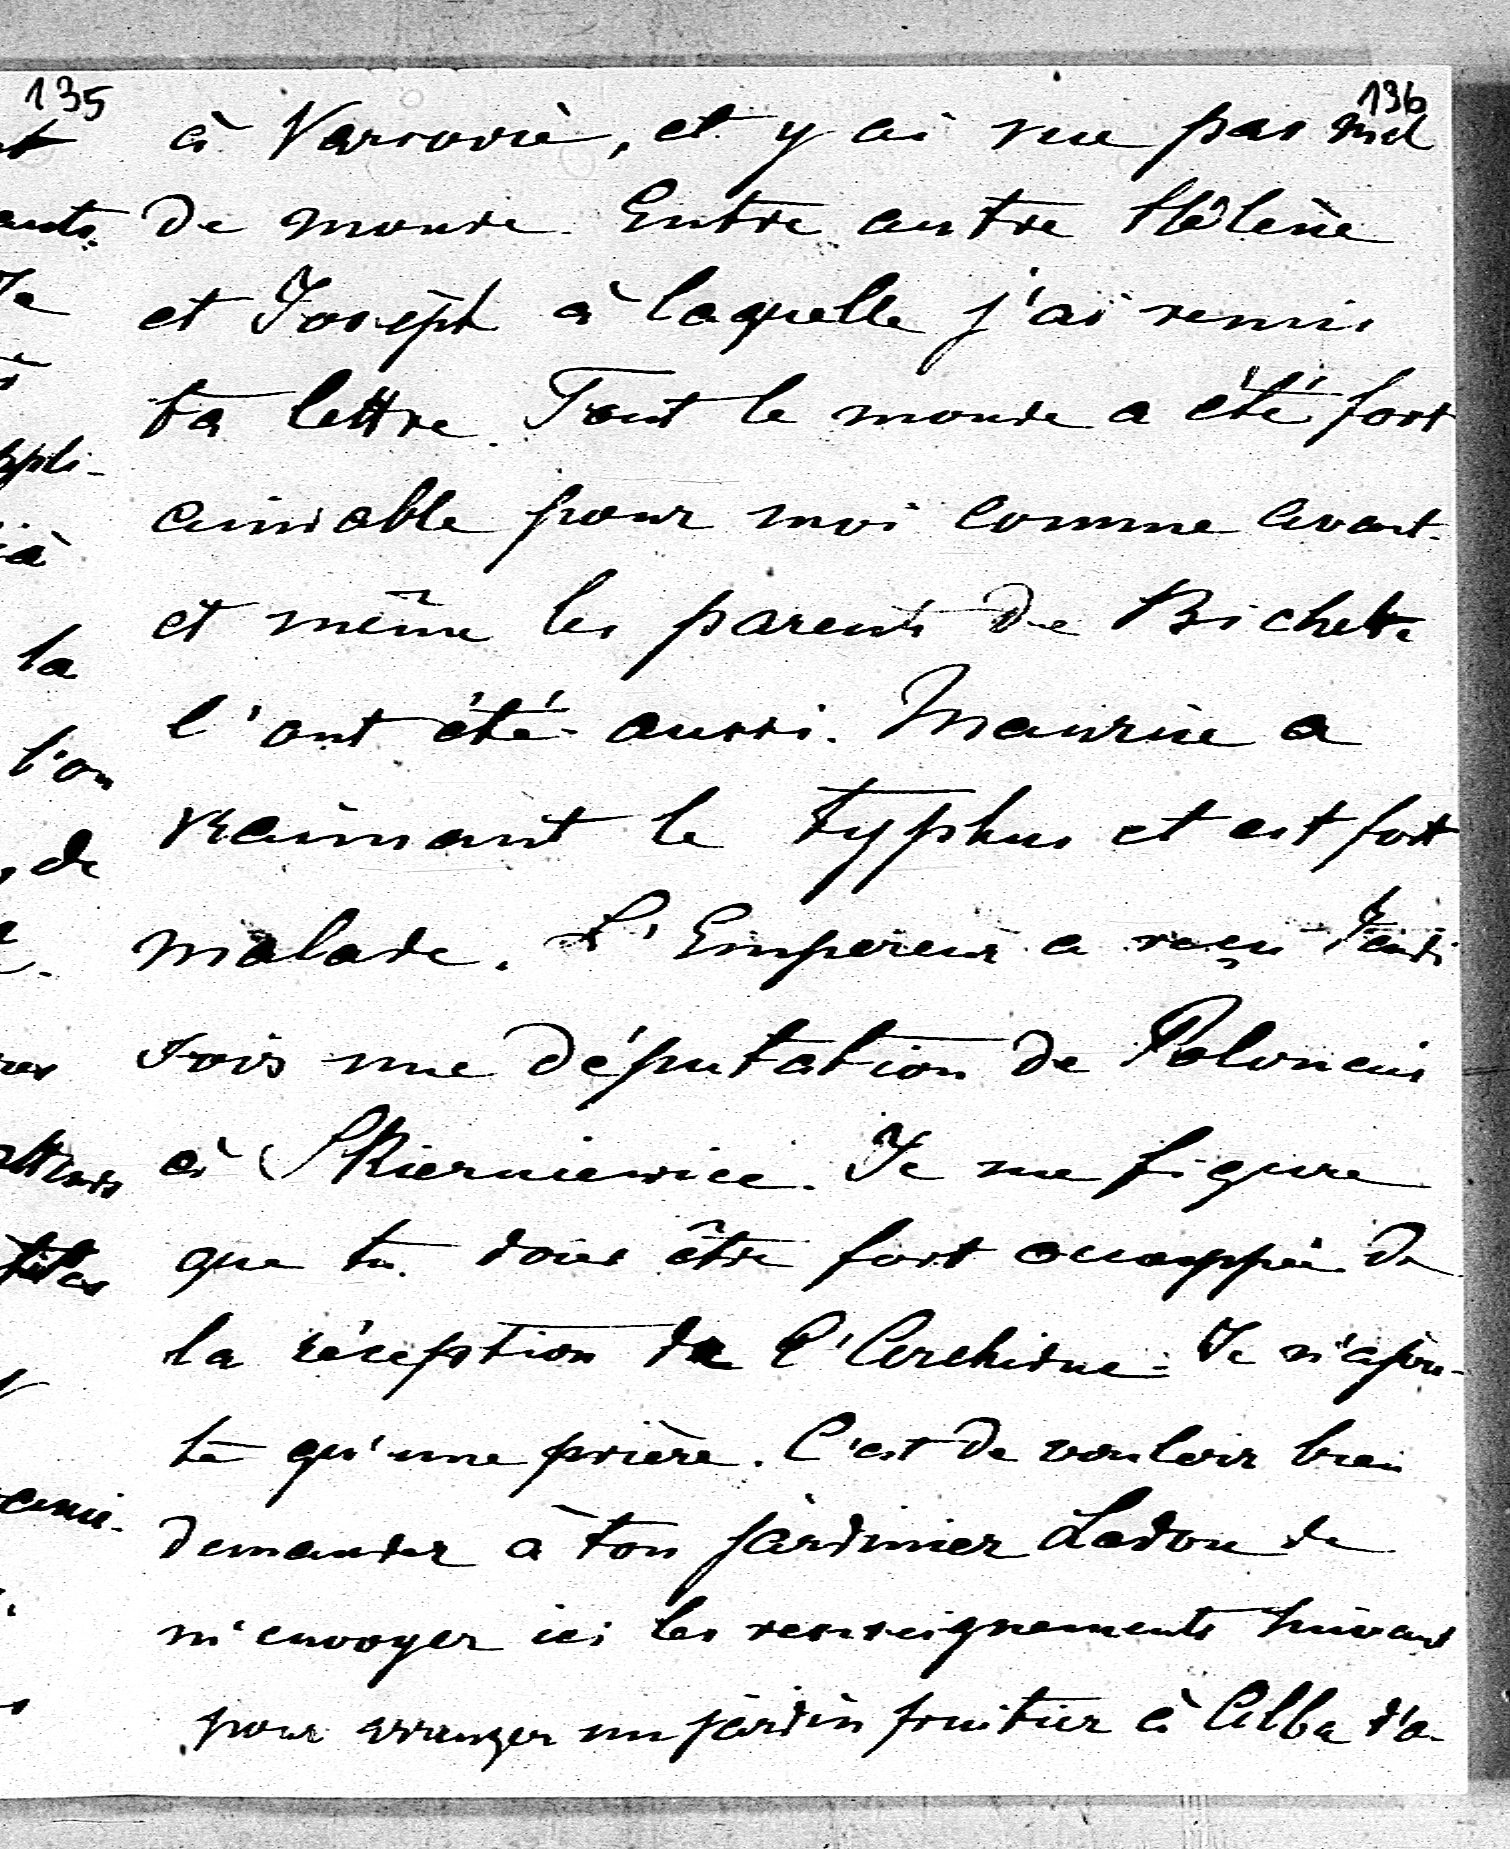 135
136
à Varsovie, et y ai vue pas mal
de monde. Entre autre Hélène
et Joseph à laquelle j'ai remis
ta lettre. Tout le monde a été fort
aimable pour moi comme avant.
et même les parents de Bichette
l'ont été aussi. Maurice a
vraimant le typhus et est fort
malade. L'Empereur a reçu Jeudi
une députation de Polonais
à Skierniewice. Je me figure
que tu dois être fort occuppée de
la réception de l'Archiduc. Je n'ajou-
te qu'une prière. C'est de vouloir bien
demander à ton jardinier Ladou de
m'envoyer ici les renseignements suivant
pour arranger un jardin fruitier à Alba d'a-
la
l'on
, de